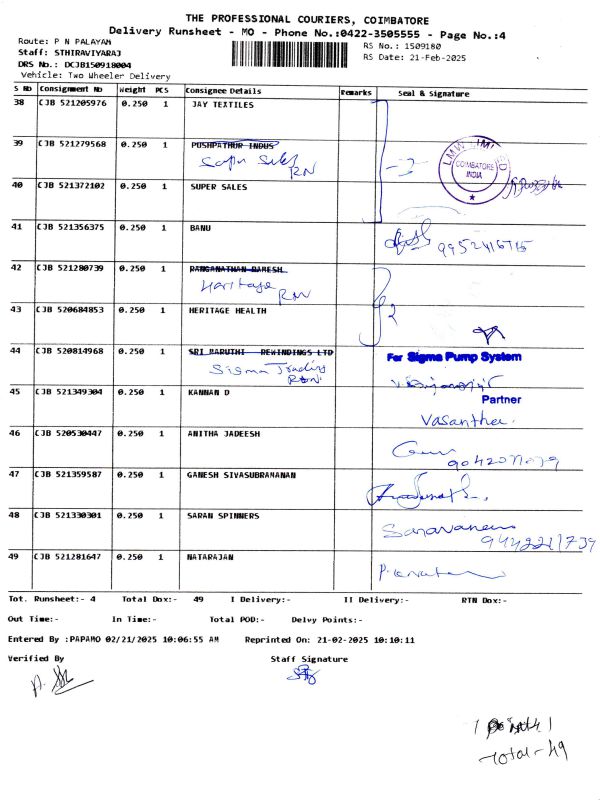 THE PROFESSIONAL COURIERS, COIMBATORE
Delivery Runsheet - MO - Phone No.:0422-3505555 - Page No.:4
Route: P N PALAYAM
RS No.: 1509180
Staff: STHIRAVIYARAJ
RS Date: 21-Feb-2025
DRS No.: DCJB150918004
Vehicle: Two Wheeler Delivery
S No Consignment No Weight PCS Consignee Details Remarks Seal & Signature
38 CJB 521205976 0.250 1 JAY TEXTILES
39 CJB 521279568 0.250 1 PUSHPATHUR INDUS
RN
LMW LIMITED
COIMBATORE
INDIA
40 CJB 521372102 0.250 1 SUPER SALES
41 CJB 521356375 0.250 1 BANU
42 CJB 521280739 0.250 1 RANGANATHAN RAMESH
Heritage
RN
43 CJB 520684853 0.250 1 HERITAGE HEALTH
44 CJB 520814968 0.250 1 SRI MARUTHI REWINDINGS LTD
Sigma Trading
For Sigma Pump System
Partner
45 CJB 521349304 0.250 1 KANNAN D
Vasantha.
46 CJB 520530447 0.250 1 ANITHA JADEESH
47 CJB 521359587 0.250 1 GANESH SIVASUBRAMANAN
48 CJB 521330301 0.250 1 SARAN SPINNERS
49 CJB 521281647 0.250 1 NATARAJAN
Tot. Runsheet:- 4 Total Dox:- 49 I Delivery:- II Delivery:- RTN Dox:-
Out Time:- In Time:- Total POD:- Delvy Points:-
Entered By :PAPAMO 02/21/2025 10:06:55 AM Reprinted On: 21-02-2025 10:10:11
Verified By Staff Signature
Total - 49